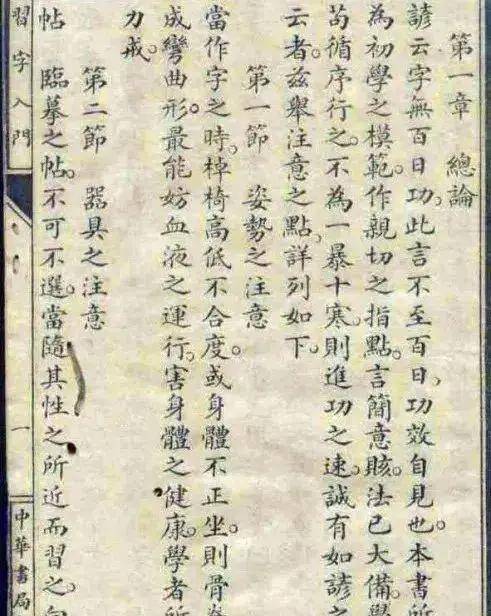 第一章 總論
諺云字無百日功。此言不至百日、功效自見也。本書所
為初學之模範。作親切之指點。言簡意賅。法已大備。學
苟循序行之。不為一暴十寒。則進功之速。誠有如諺
云者。茲舉注意之點、詳列如下。
第一節 姿勢之注意
當作字之時。棹椅高低不合度。或身體不正坐。則骨
成彎曲形。最能妨血液之運行。害身體之健康。學者所
力戒。
第二節 器具之注意
帖 臨摹之帖。不可不選。當隨其性之所近而習之。
習字入門
一
中華書局